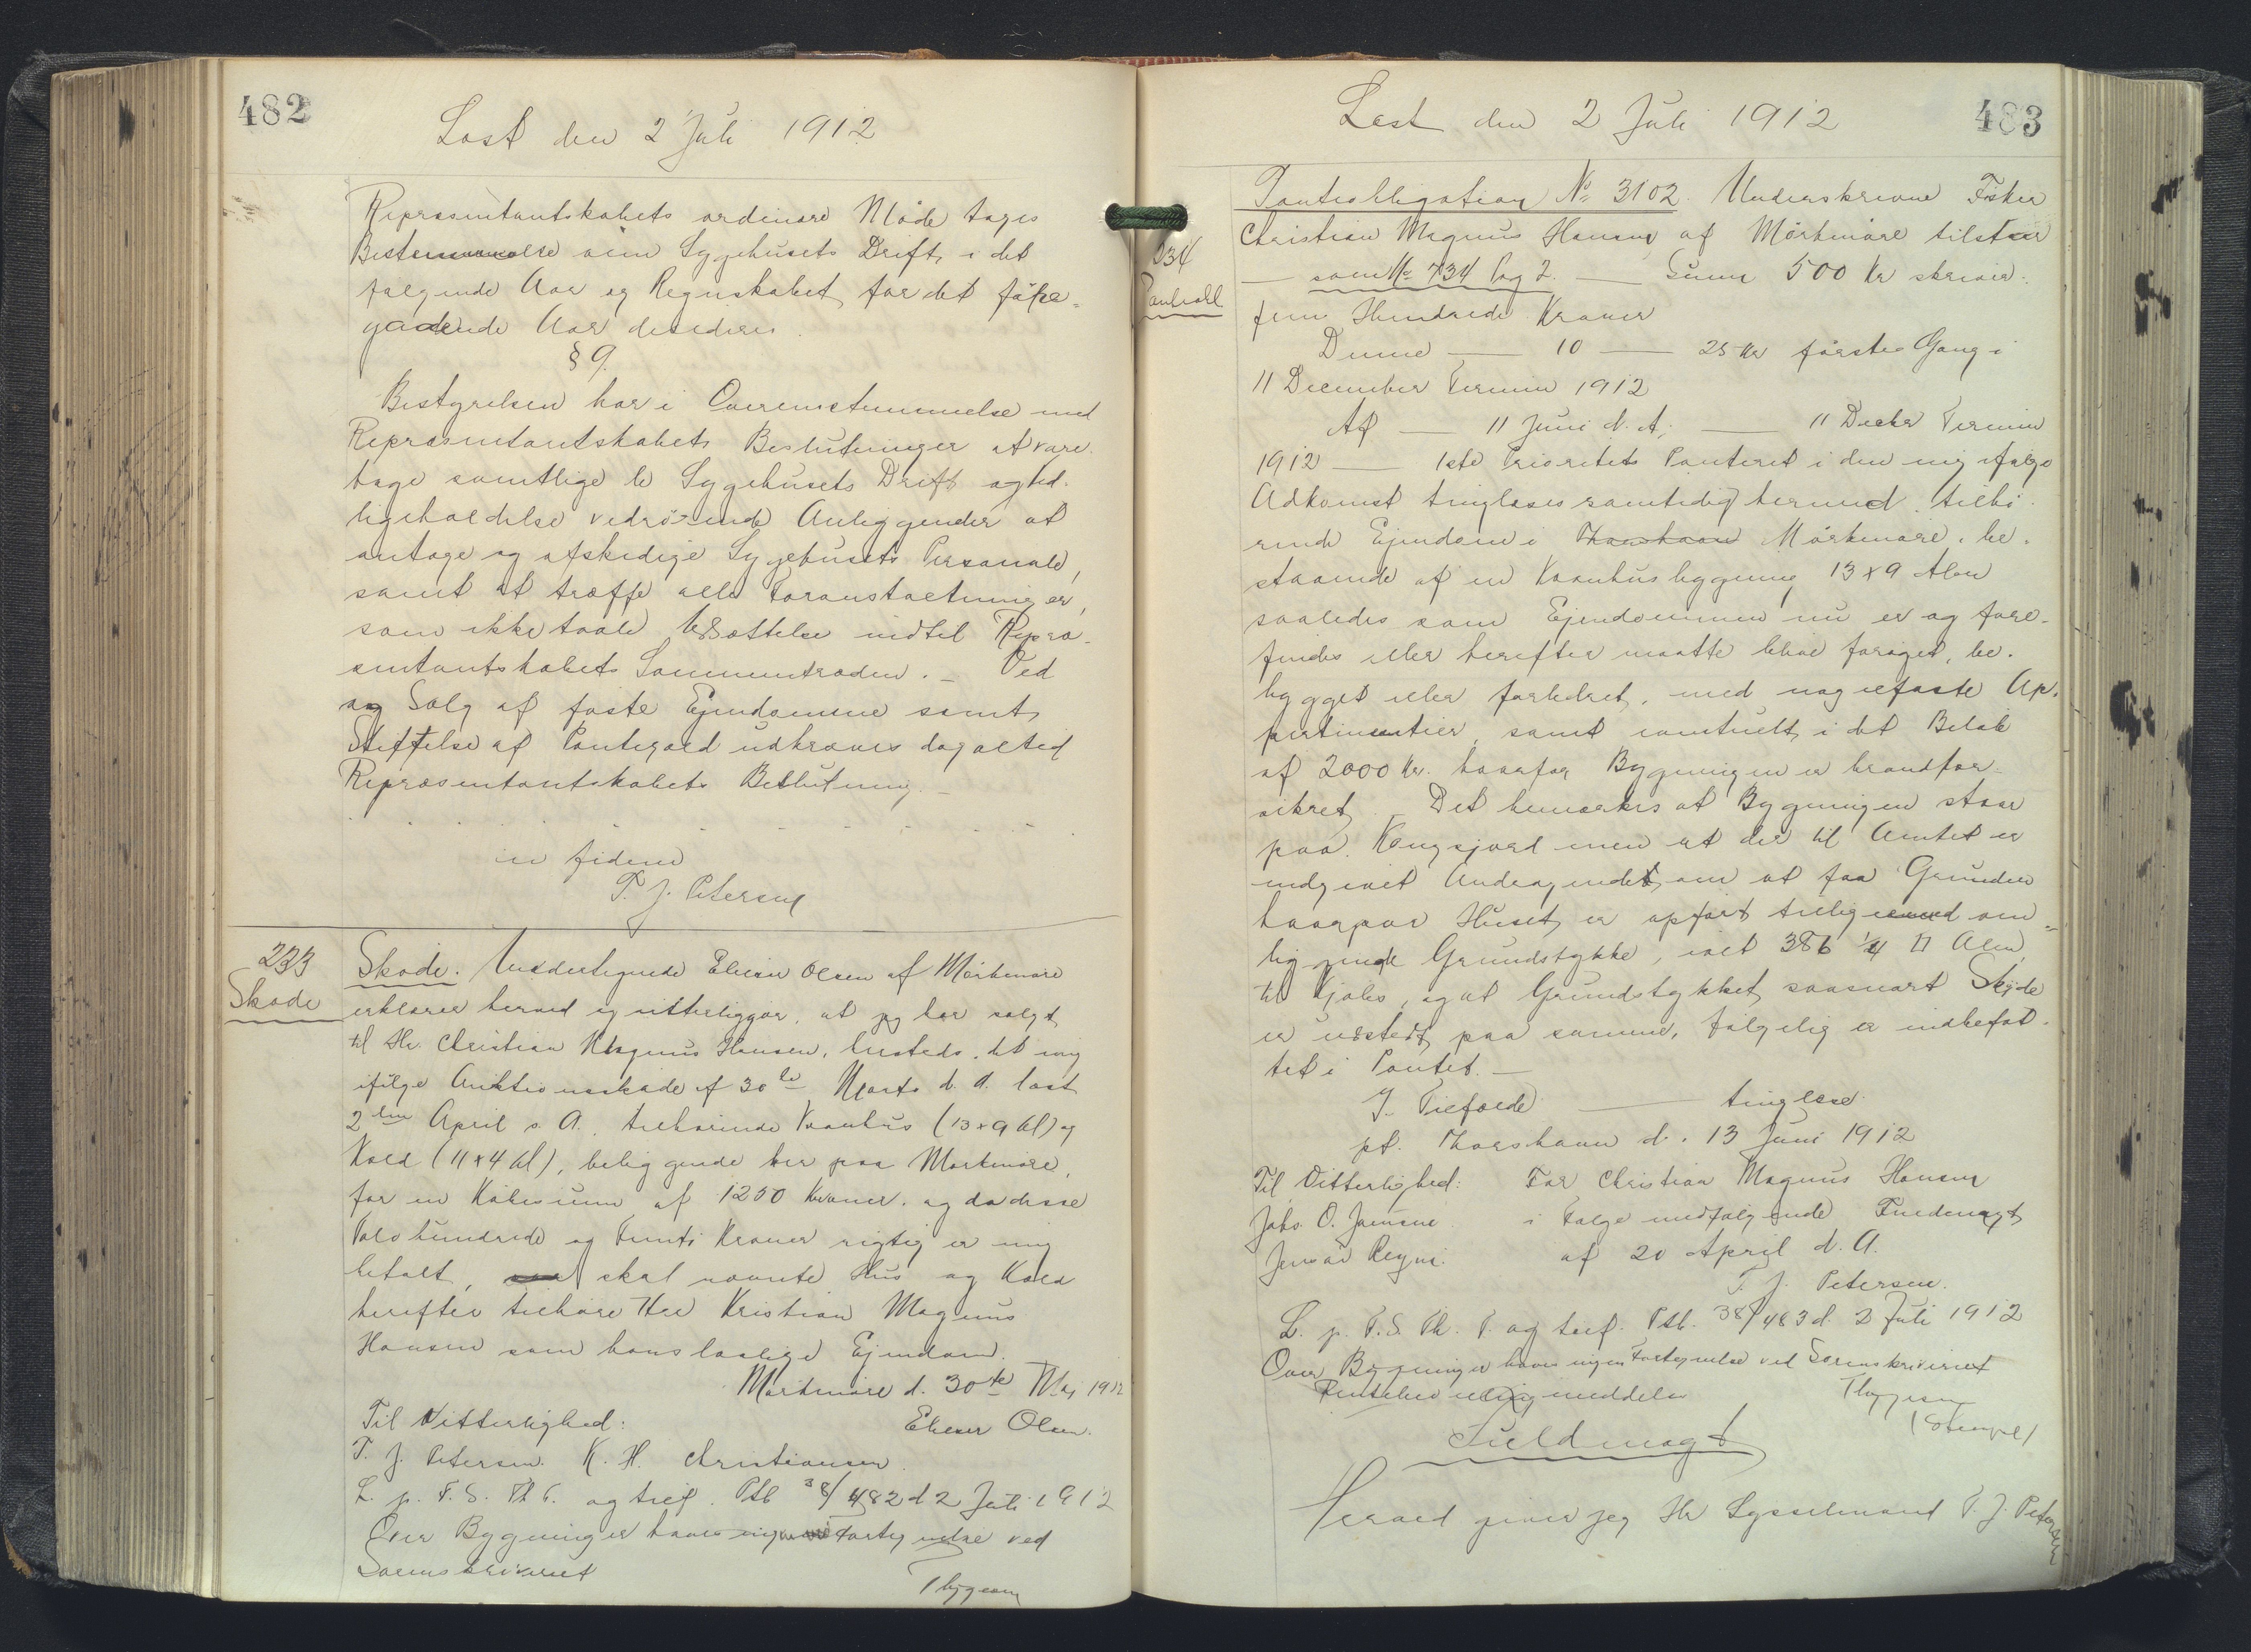 482
Læst den 2 Juli 1912
Repræsentantskabets ordinære Möde tages
Bestemmelse om Sygehusets Drift i det
følgende Aar og Regnskabet for det före=
gaaende Aar decideres.
§ 9.
Bestyrelsen har i Overensstemmelse med
Repræsentantskabets Beslutninger at vare-
tage samtlige de Sygehusets Drift og ved-
ligeholdelse vedrörende Anliggender at
antage og afskedige Sygehusets Personale,
samt at træffe alle Foranstaltninger,
som ikke taale Udsættelse indtil Repræ-
sentantskabets Sammentræden. – Ved
og Salg af faste Ejendomme samt
Stiftelse af Pantegæld udkræves dog altid
Repræsentantskabets Beslutning. –
in fidem
P. J. Petersen
233
Skøde
Skøde. Undertegnede Elieser Olsen af Mörkenöre
erklærer herved og vitterliggör, at jeg har solgt
til Hr. Christian Magnus Hansen, husteds, det mig
ifölge Auktionsskøde af 30te Marts d. A. læst
2den April s. A., tilhörende Vaanhus (13 x 9 Al) og
Kold (11 x 4 Al), beliggende her paa Mörkenöre,
for en Købesum af 1250 Kroner. og da disse
Tolvhundrede og Femti Kroner rigtig er mig
betalt, skal nævnte Hus og Kold
herefter tilhöre Her Kristian Magnus
Hansen som hans lovlige Ejendom.
Mörkenöre d. 30te Maj 1912
Til Vitterlighed: Elieser Olsen.
P. J. Petersen. K. H. Christiansen
L. p. F. S. Th. T. og tilf. Ptb 38/482 d 2 Juli 1912
Over Bygninger haves ingen Fortegnelse ved
Sorenskriveriet
Thygesen
483
Læst den 2 Juli 1912
234
Panteobl
Panteobligation No 3102. Underskrevne Fisker
Christian Magnus Hansen af Mörkenöre tilstaar
— som No 734 Pag 2. — Sum 500 Kr skriver.
fem Hundrede Kroner
Denne — 10 — 25 Kr förste Gang i
11 December Termin 1912
Af — 11 Juni d. A. — 11 Decbr Termin
1912 — 1ste Prioritets Panteret i den mig ifølge
Adkomst tinglæses samtidig hermed tilhö-
rende Ejendom i Thorshavn Mörkenöre, be-
staaende af en Vaanhusbygning 13 x 9 Alen
saaledes som Ejendommen nu er og fore-
findes eller herefter maatte blive forøget, be-
bygget eller forbedret, med nagelfaste Ap-
pertinentier, samt eventuelt i det Beløb
af 2000 Kr. hvorfor Bygningen er brandfor-
sikret. Det bemærkes at Bygningen staar
paa Kongsjord men at der til Amtet er
indgivet Andragendet om at faa Grunden
hvorpaa Huset er opført tilligemed om-
liggende Grundstykke, ialt 386 1/4 □ Alen
til Kjøbs, og at Grundstykket saasnart Skjøde
er udstedt paa samme, følgelig er indbefat-
tet i Pantet. —
I Tilfælde — tinglæse.
pt. Thorshavn d. 13 Juni 1912
Til Vitterlighed: For Christian Magnus Hansen
Johs. O. Joensen i Følge medfølgende Fuldmagt
af 20 April d. A.
P. J. Petersen.
L. p. F. S. Th. T. og tilf. Ptb. 38/483 d. 2 Juli 1912
Over Bygninger haves ingen Fortegnelse ved Sorenskriveriet
Thygesen
(Stempel)
Fuldmagt
Herved giver jeg Hr Sysselmand P. J. Petersen